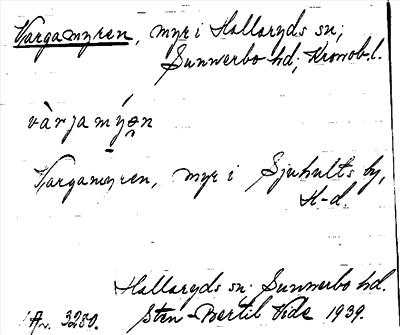 Vargamyren, myr i Hallaryds sn;
Sunnerbo hd; Kronob. l.
vàrjamýən
Vargamyren, myr i Sjuhults by,
H-d.
Hallaryds sn. Sunnerbo hd.
Av. 3280. Sten-Bertil Vide 1939.